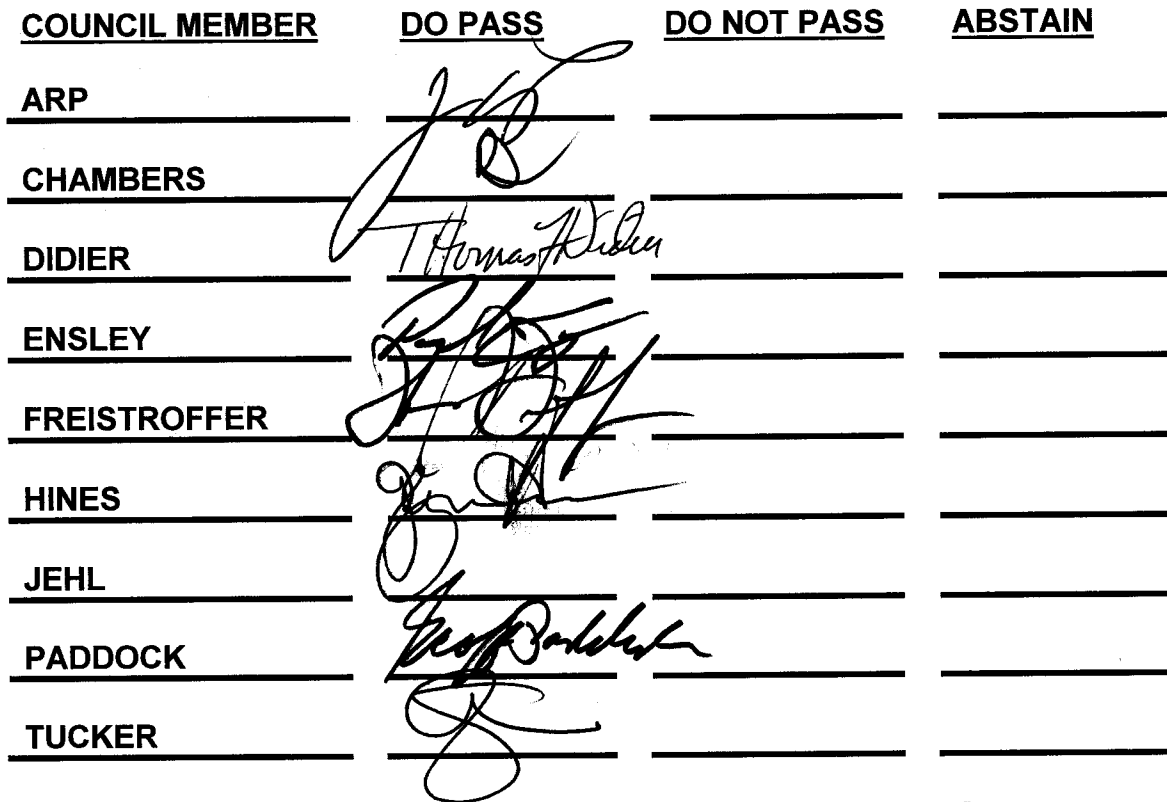 COUNCIL MEMBER DO PASS DO NOT PASS ABSTAIN
ARP
CHAMBERS
DIDIER Thomas F Didier
ENSLEY
FREISTROFFER
HINES
JEHL
PADDOCK Geoff Paddock
TUCKER